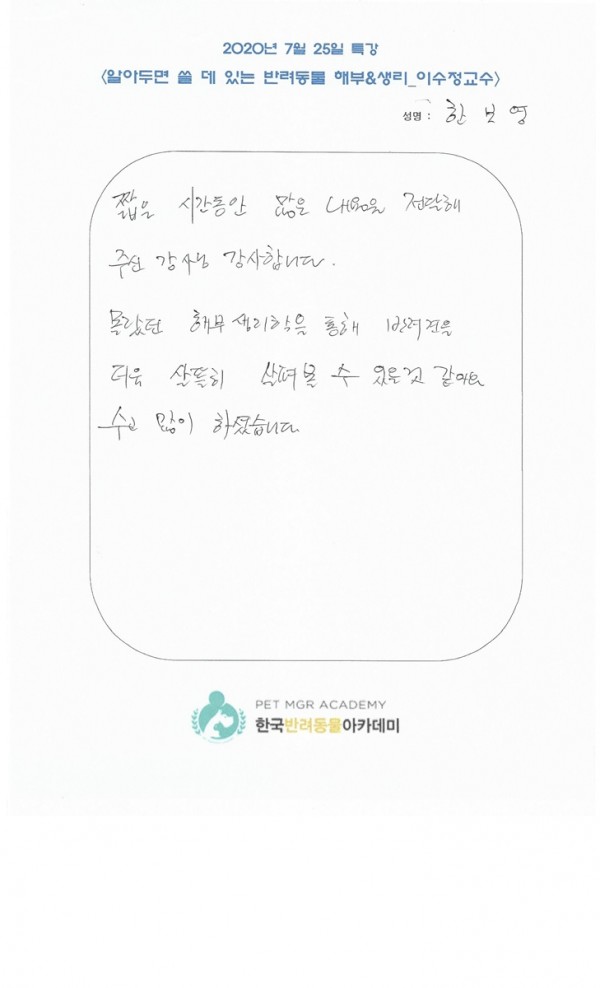 2020년 7월 25일 특강
<알아두면 쓸 데 있는 반려동물 해부&생리_이수정교수>
성명 : 한 보 영
짧은 시간동안 많은 내용을 전달해
주신 강사님 감사합니다.
몰랐던 해부생리학을 통해 반려견을
더욱 살뜰히 살펴볼 수 있을것 같아요
수고 많이 하셨습니다
PET MGR ACADEMY
한국반려동물아카데미